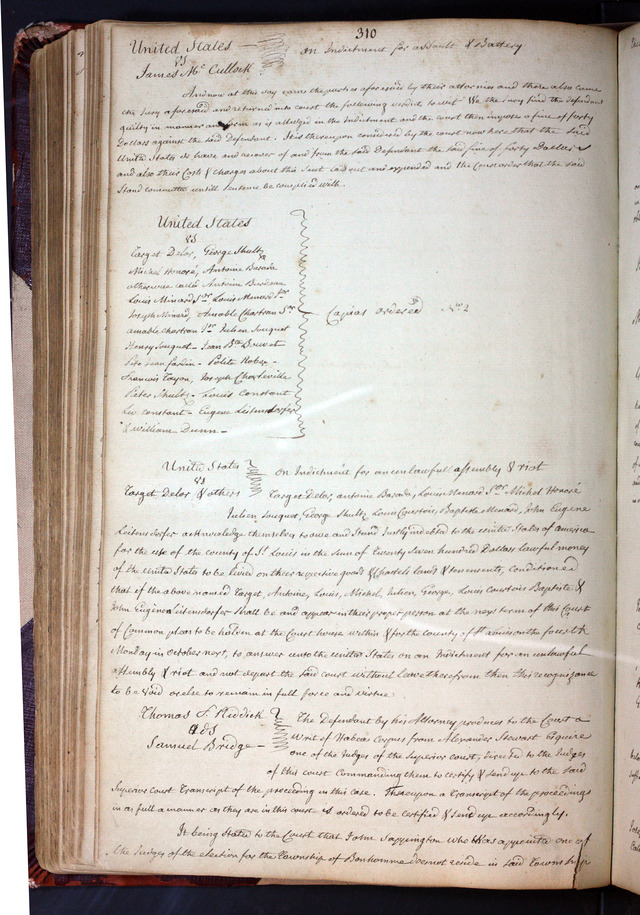 310
United States — An Indictment for assault & Battery
vs
James Mc Cullock
And now at this day came the parties aforesaid by their attornies and there also came
the Jury aforesaid and returned into court the following verdict to wit We the Jury find the defendant
guilty in manner and form as is alledged in the Indictment and the court then impose a fine of forty
Dollars against the said Defendant. It is thereupon considered by the court now here that the said
United States do have and recover of and from the said Defendant the said fine of forty Dollars
and also their Costs & Charges about this Suit laid out and expended and the Court order that the said
Stand committed untill sentence be complied with.
United States
vs
Target Delor, George Shultz
Michel Honoré, Antoine Barada
otherwise called Antoine Burdeau
Louis Minard Sor Louis Menard Jor
Joseph Minard, Amable Chartran Sor
amable chartran Jor Julien Jouquet
Henry Jouquet - Jean Bte Drivet
Pito Jean Jardin - Polite Robez -
Francois Tayon, Joseph Charleville
Peter Shultz - Louis Constant
Leu. constant - Eugene Leitensdorfer
& William Dunn -
Capias ordered No. 2
United States on Indictment for an unlawfull assembly & riot
vs
Target Delor & others Target Delor, antoine Barada, Louis Menard Sor. Michel Honoré
Julien Jouquet, George Shultz, Louis Courtois, Baptiste Menard, John Eugene
Leitensdorfer acknowledge themselves to owe and stand Justly indebted to the United States of america
for the use of the county of St. Louis in the sum of Twenty Seven hundred Dollars lawful money
of the United States to be levied on their respective goods & chattels lands & tenements, conditioned
that if the above named Target, Antoine, Louis, Michel, Julien, George, Louis Courtois Baptiste &
John Eugene Leitensdorfer shall be and appear in their proper person at the next term of this Court
of Common pleas to be holden at the Court house within & for the county of St Louis on the fourth
Monday in October next, to answer unto the United States on an Indictment for an unlawful
assembly & riot and not depart the said court without leave therefrom then this recognizance
to be void or else to remain in full force and virtue.
Thomas F. Riddick The Defendant by his Attorney produces to the Court a
ads Writ of Habeas Corpus from Alexander Stewart Esquire
Samuel Bridge — one of the Judges of the Superior court, directed to the Judges
of this court Commanding them to certify & send up to the said
Superior court Transcript of the proceeding in this case. Thereupon a Transcript of the proceedings
in as full a manner as they are in this court is ordered to be certified & sent up accordingly.
It being Stated to the Court that John Sappington who was appointed one of
the Judges of the election for the Township of Bonhomme does not reside in said Township